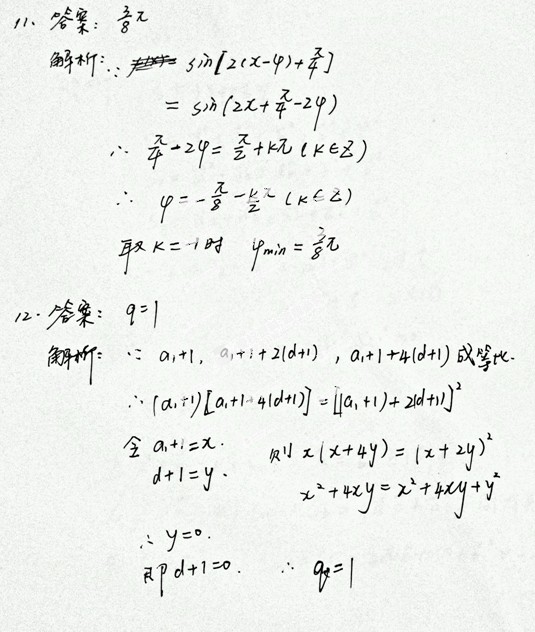 11. 答案: 3/8π
解析: ∵ sin[2(x-φ)+π/4]
= sin(2x+π/4-2φ)
∴ π/4-2φ=π/2+kπ (k∈Z)
∴ φ=-π/8-k/2π (k∈Z)
取 k=-1时 φmin=3/8π
12. 答案: q=1
解析: ∵ a₁+1, a₁+1+2(d+1), a₁+1+4(d+1) 成等比.
∴ (a₁+1)[a₁+1+4(d+1)]=[(a₁+1)+2(d+1)]²
令 a₁+1=x. 则 x(x+4y)=(x+2y)²
d+1=y. x²+4xy=x²+4xy+y²
∴ y=0.
即 d+1=0. ∴ q=1